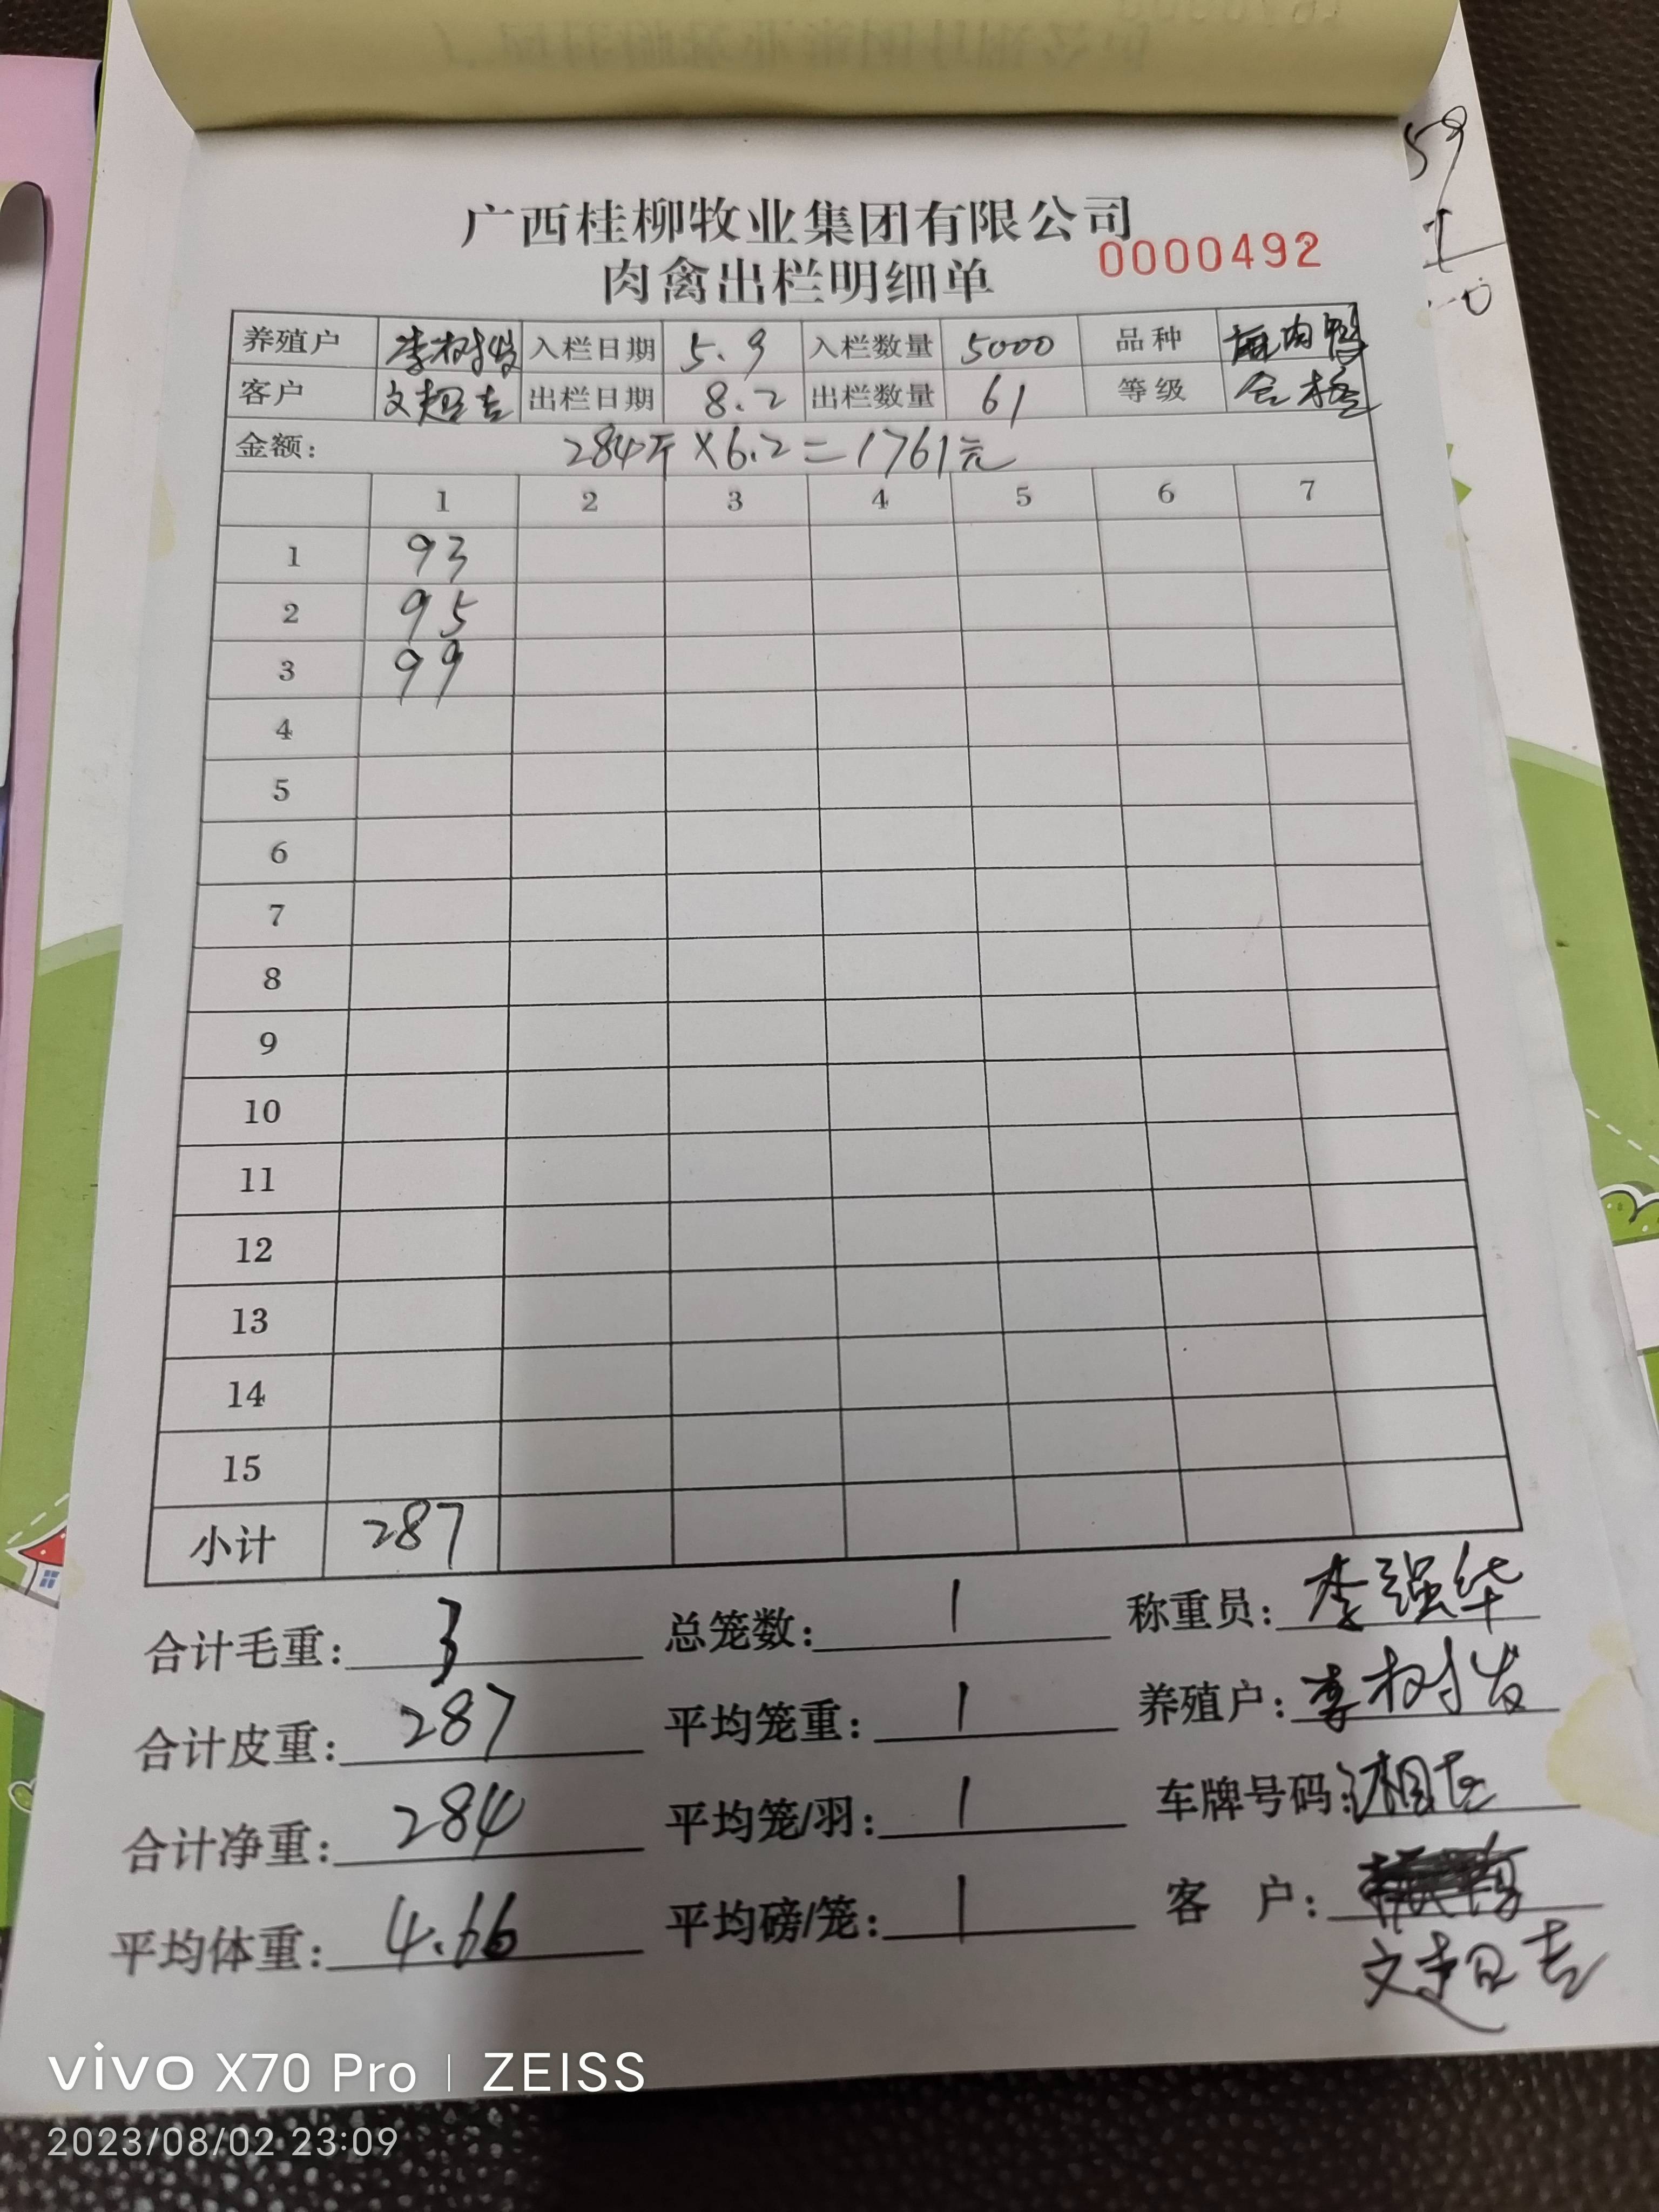 广西桂柳牧业集团有限公司
肉禽出栏明细单 0000492
养殖户 李树发 入栏日期 5.9 入栏数量 5000 品种 麻肉鸭
客户 文超吉 出栏日期 8.2 出栏数量 61 等级 合格
金额: 284斤×6.2=1761元
1 2 3 4 5 6 7
1 93
2 95
3 99
4
5
6
7
8
9
10
11
12
13
14
15
小计 287
合计毛重: 3 总笼数: 1 称重员: 李强华
合计皮重: 287 平均笼重: 1 养殖户: 李树发
合计净重: 284 平均笼/羽: 1 车牌号码: 湘
平均体重: 4.66 平均磅/笼: 1 客 户:
文超吉
59
vivo X70 Pro | ZEISS
2023/08/02 23:09